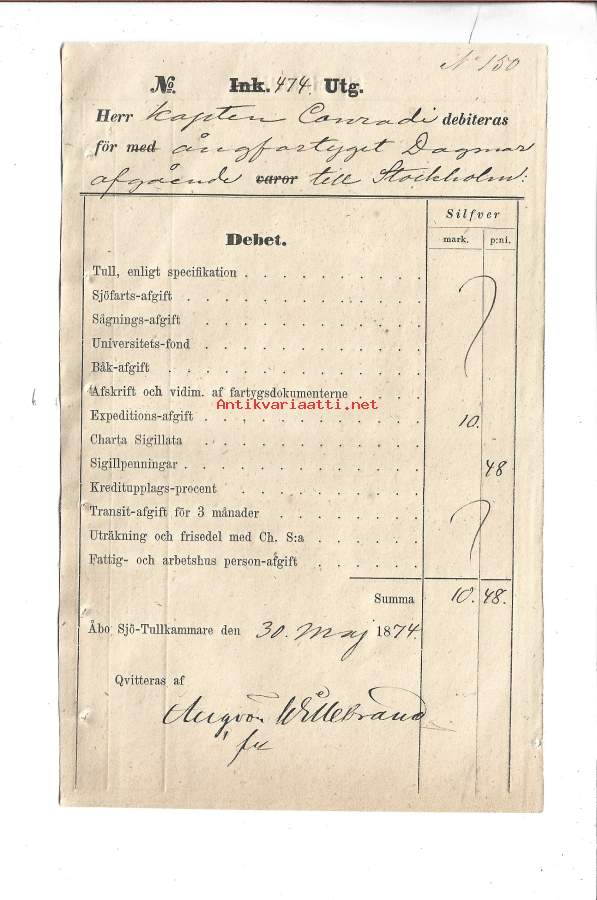 N° 150
No. Ink. 474. Utg.
Herr Kapten Conradi debiteras
för med ångfartyget Dagmar
afgående varor till Stockholm:
Silfver
Debet. mark. p:ni.
Tull, enligt specifikation
Sjöfarts-afgift
Sågnings-afgift
Universitets-fond
Båk-afgift
Afskrift och vidim. af fartygsdokumenterne
Antikvariaatti.net
Expeditions-afgift 10.
Charta Sigillata
Sigillpenningar 48
Kreditupplags-procent
Transit-afgift för 3 månader
Uträkning och frisedel med Ch. S:a
Fattig- och arbetshus person-afgift
Summa 10. 48.
Åbo Sjö-Tullkammare den 30. Maj 1874.
Qvitteras af
Aug von Willebrand